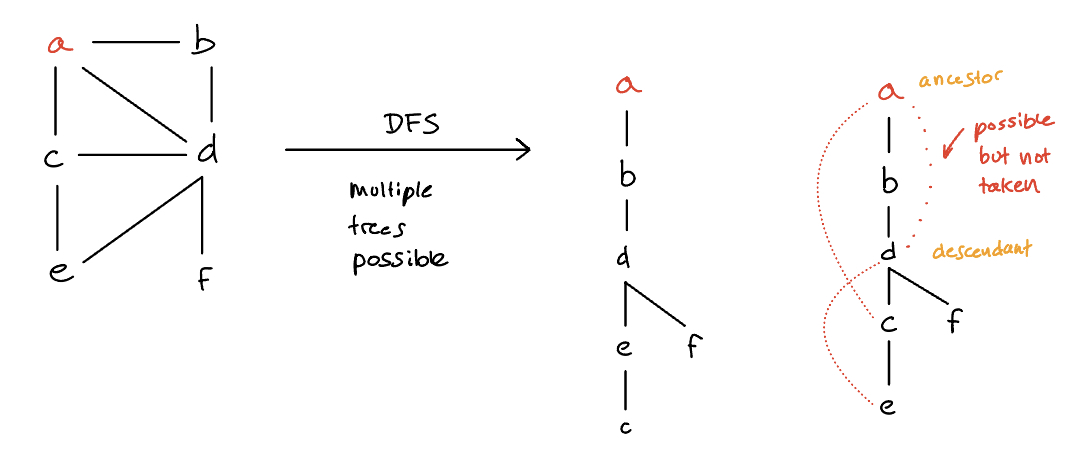 a b
c d
e f
DFS
multiple
trees
possible
a
b
d
e f
c
a ancestor
possible
but not
taken
b
d descendant
c f
e